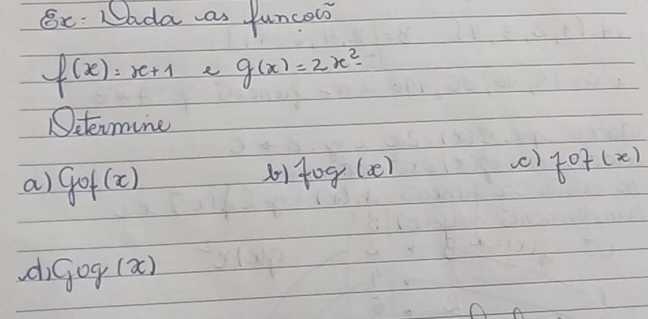 Ex: Dada as funções
f(x) = x+1 e g(x) = 2x²
Determine
a) Gof(x) b) fog (x) c) fof (x)
d) Gog (x)